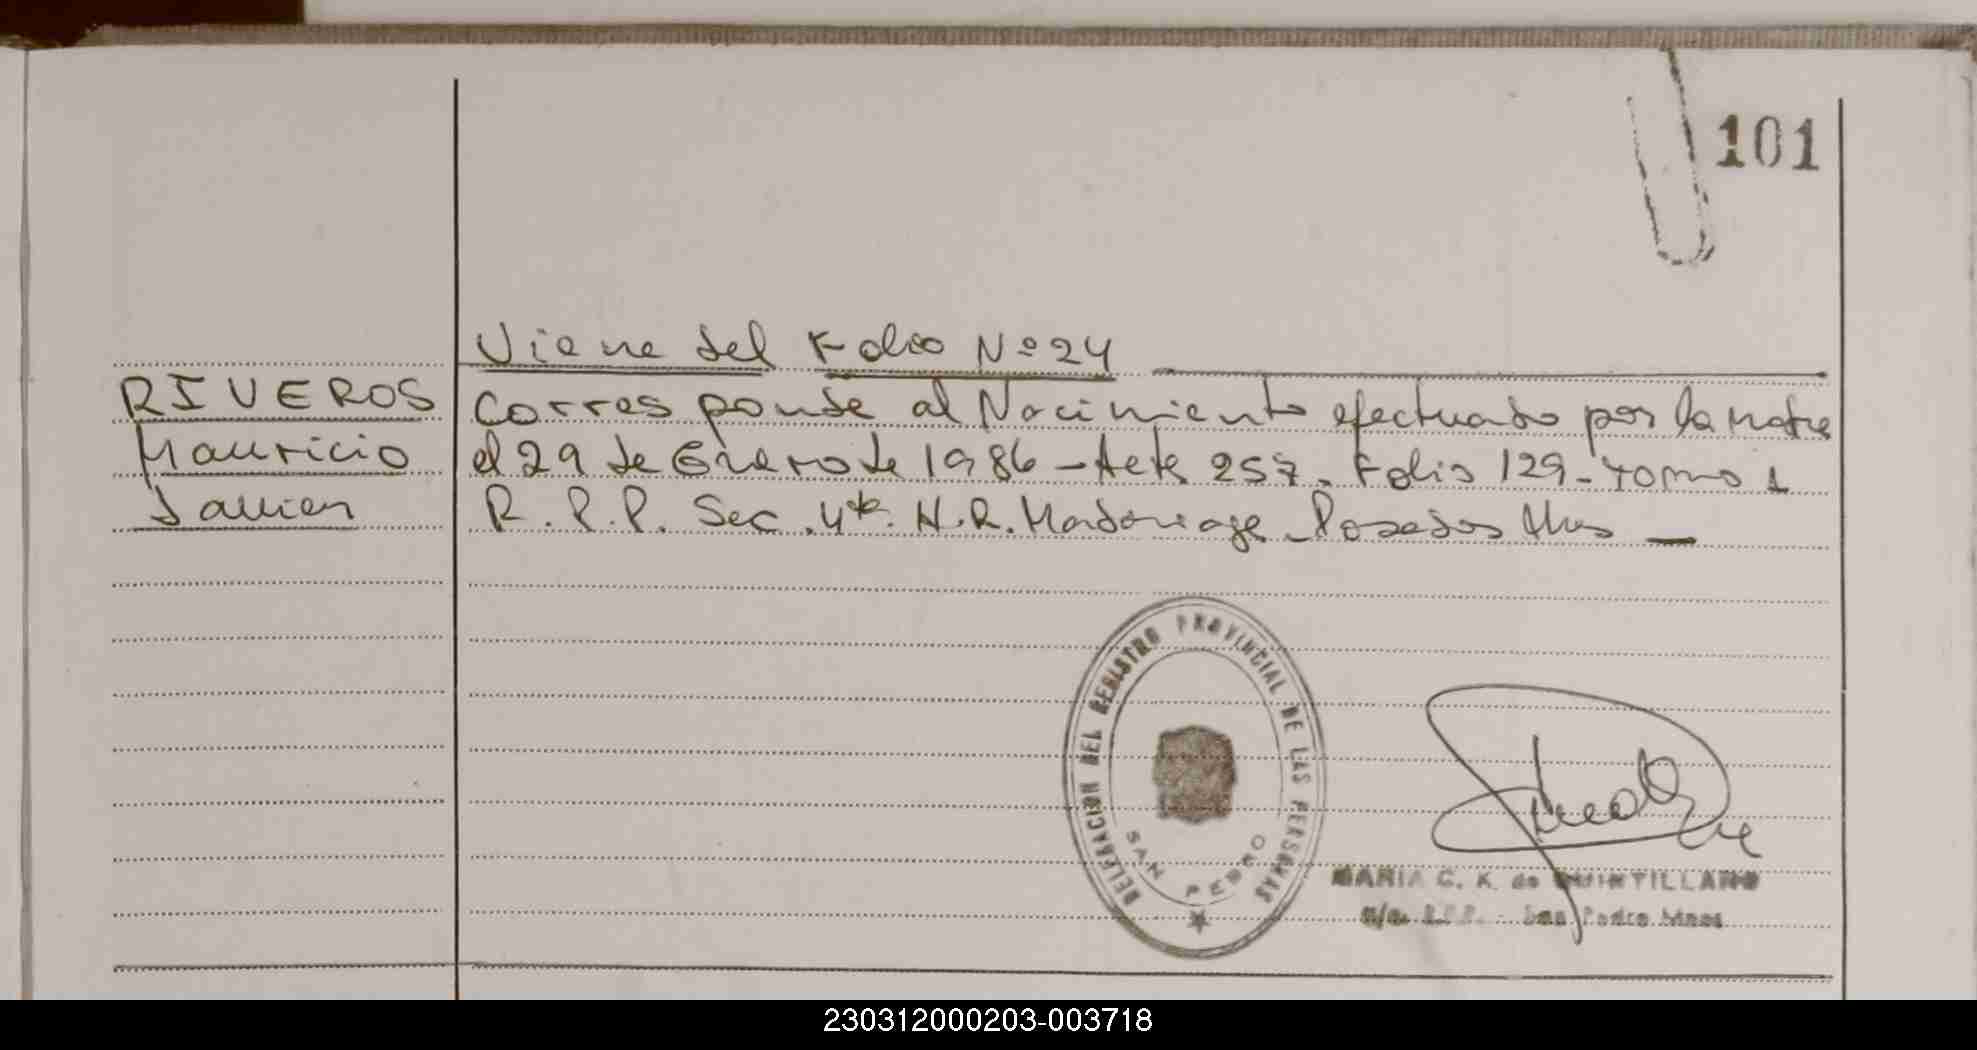 101
Viene del Folio Nº 24
RIVEROS
Mauricio
Javier
Corresponde al Nacimiento efectuado por la Madre
el 29 de Enero de 1986 - Acta 257. Folio 129 - Tomo 1
R.P.P. Sec. 4ta. H.R. Madariaga - Posadas Mnes -
DELEGACION DEL REGISTRO PROVINCIAL DE LAS PERSONAS
SAN PEDRO
MARIA C. K. de QUINTILLANO
R.P.P. - San Pedro Mnes
230312000203-003718